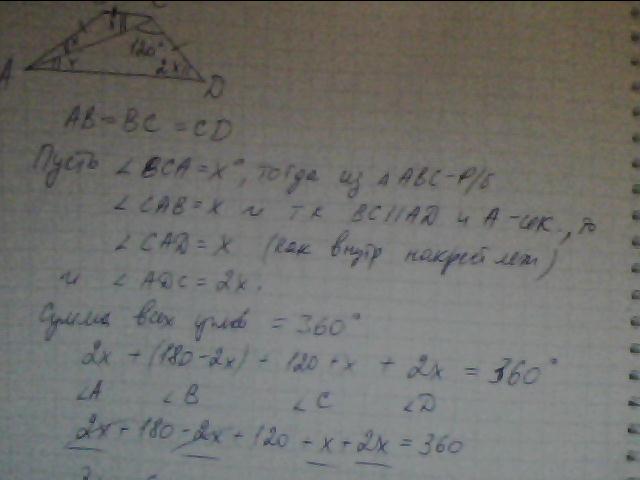 C
x
x
x
120°
2x
A
D
AB = BC = CD
Пусть ∠BCA = x°, тогда из △ABC - р/б
∠CAB = x и т.к BC||AD и A - сек., то
∠CAD = x (как внутр накрест леж)
и ∠ADC = 2x.
Сумма всех углов = 360°
2x + (180 - 2x) + 120 + x + 2x = 360°
∠A ∠B ∠C ∠D
2x + 180 - 2x + 120 + x + 2x = 360